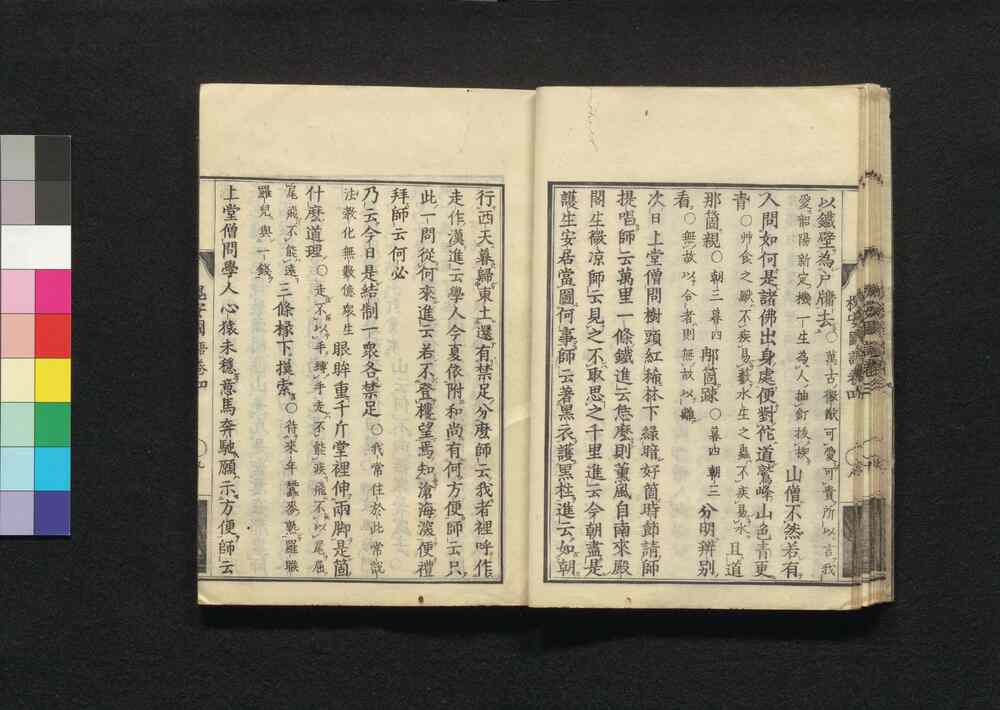 以鐵壁為戸牖去○萬古徽猷可愛可貴所以言我
愛韶陽新定機一生為人抽釘拔楔山僧不然若有
人問如何是諸佛出身處便對佗道鷲峰山色青更
青○艸食之獸不疾易藪水生之蟲不疾易水且道
那箇親○朝三暮四那箇踈○暮四朝三分明辨別
看○無故以合者則無故以離
次日上堂僧問樹頭紅稀林下綠暗好箇時節請師
提唱師云萬里一條鐵進云恁麼則薰風自南來殿
閣生微凉師云見之不取思之千里進云今朝盡是
護生安居當圖何事師云著黑衣護黑柱進云如朝
行西天暮歸東土還有禁足分麼師云我者裡呼作
走作漢進云學人今夏依附和尚有何方便師云只
此一問從何來進云若不登樓望焉知滄海深便禮
拜師云何必
乃云今日是結制一衆各禁足○我常住於此常說
法教化無數億衆生眼眸重千斤堂裡伸兩脚是箇
什麼道理○走不以手縛手走不能疾飛不以尾屈
尾飛不能遠三條椽下摸索○待來年蠶麥熟羅睺
羅兒與一錢
上堂僧問學人心猿未穩意馬奔馳願示方便師云
槐安國語卷四